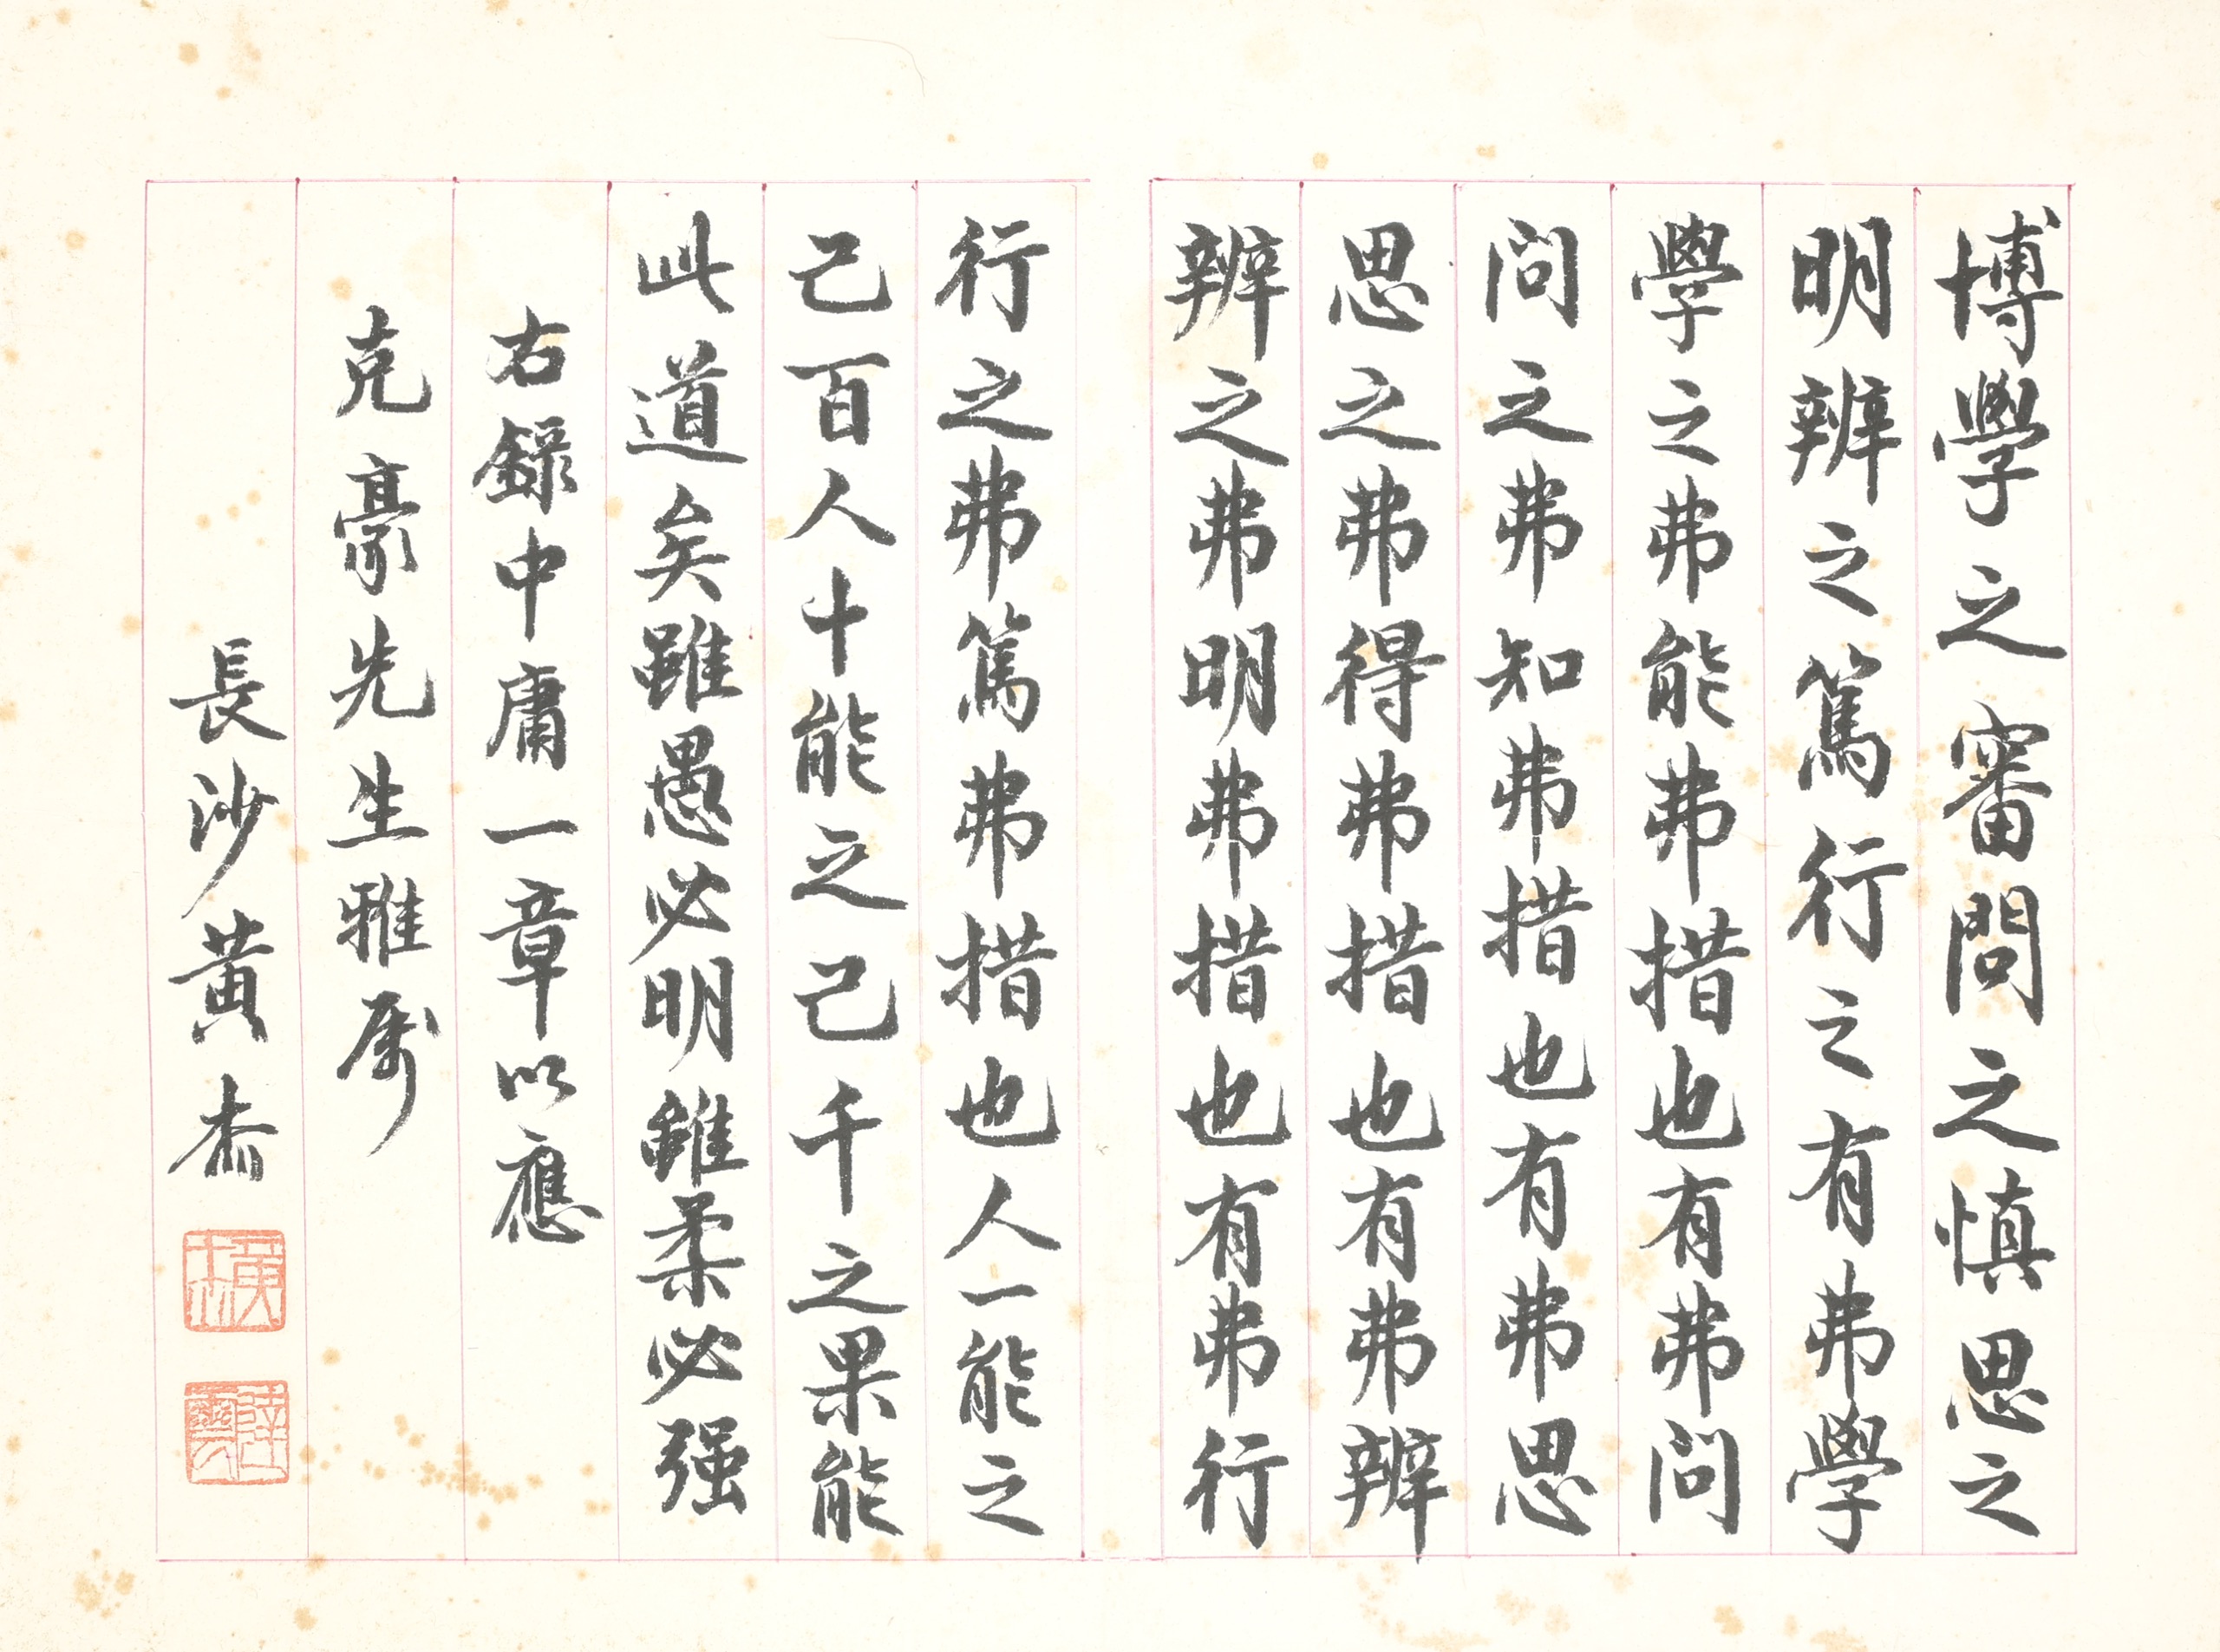 博學之審問之慎思之
明辨之篤行之有弗學
學之弗能弗措也有弗問
問之弗知弗措也有弗思
思之弗得弗措也有弗辨
辨之弗明弗措也有弗行
行之弗篤弗措也人一能之
己百人十能之己千之果能
此道矣雖愚必明雖柔必强
右錄中庸一章以應
克豪先生雅屬
長沙黃杰
黃杰